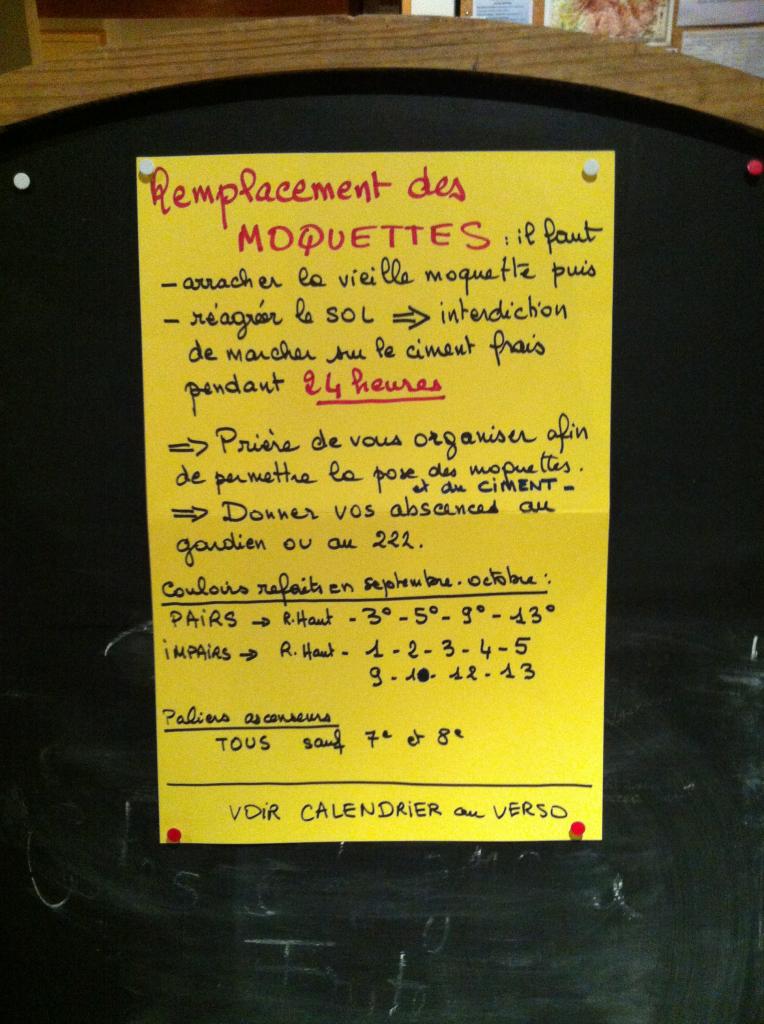 Remplacement des
MOQUETTES : il faut
- arracher la vieille moquette puis
- réagréer le SOL => interdiction
de marcher sur le ciment frais
pendant 24 heures
=> Prière de vous organiser afin
de permettre la pose des moquettes.
et du CIMENT -
=> Donner vos abscences au
gardien ou au 222.
Couloirs refaits en septembre. octobre :
PAIRS -> R.Haut - 3° - 5° - 9° - 13°
IMPAIRS -> R. Haut - 1 - 2 - 3 - 4 - 5
9 - 10 - 12 - 13
Paliers ascenseurs
TOUS sauf 7e et 8e
VOIR CALENDRIER au VERSO